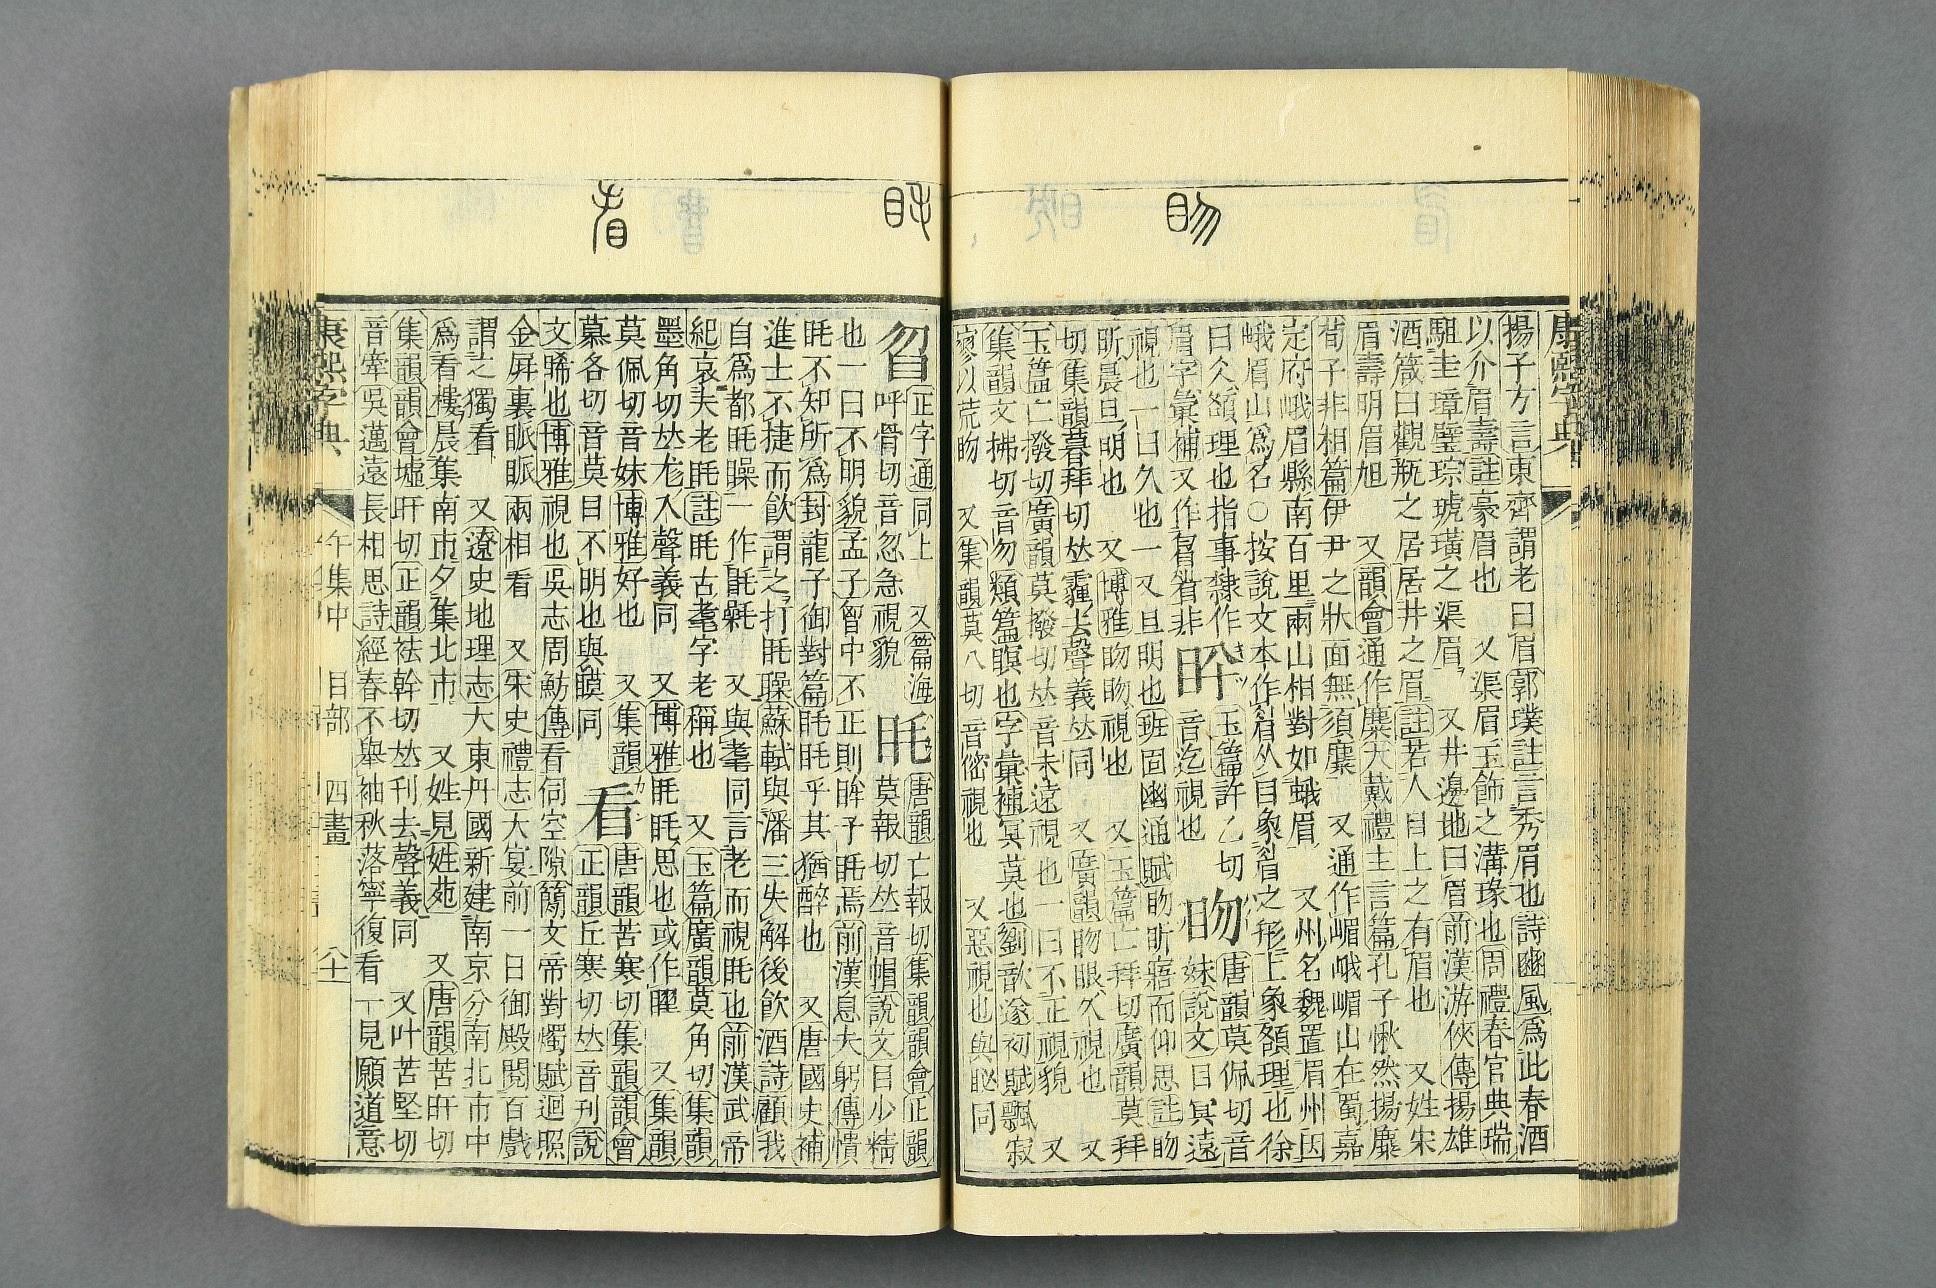 眉
康熙字典
揚子方言東齊謂老曰眉郭璞註言秀眉也詩豳風爲此春酒
以介眉壽註豪眉也 又渠眉玉飾之溝瑑也周禮春官典瑞
駔圭璋璧琮琥璜之渠眉 又井邊地曰眉前漢游俠傳揚雄
酒箴曰觀瓶之居居井之眉註若人目上之有眉也 又姓宋
眉壽明眉旭 又韻會通作麋大戴禮主言篇孔子愀然揚麋
荀子非相篇伊尹之狀面無須麋 又通作嵋峨嵋山在蜀嘉
定府峨眉縣南百里兩山相對如蛾眉 又州名魏置眉州因
峨眉山爲名○按說文本作𥇘从目象𥇘之形上象頟理也徐
曰久頟理也指事隸作
眉字彙補又作𥇘𥄼非 盻 玉篇許乙切
音迄視也 昒 唐韻莫佩切音
妹說文目冥遠
視也一曰久也一又旦明也班固幽通賦昒昕寤而仰思註昒
昕晨旦明也 又博雅昒昒視也 又玉篇亡拜切廣韻莫拜
切集韻暮拜切𠀤霾去聲義𠀤同 又廣韻昒眼久視也 又
玉篇亡撥切廣韻莫撥切𠀤音末遠視也一曰不正視貌 又
集韻文拂切音勿類篇瞑也字彙補冥莫也劉歆遂初賦飄寂
寥以荒昒 又集韻莫八切音密視也 又惡視也與䀛同
昒
眊
看
𥄎 正字通同上 又篇海
呼骨切音忽急視貌 眊 唐韻亡報切集韻韻會正韻
莫報切𠀤音帽說文目少精
也一曰不明貌孟子胷中不正則眸子眊焉前漢息夫躬傳憒
眊不知所爲封龍子御對篇眊眊乎其猶醉也 又唐國史補
進士不捷而飮謂之打眊𥊣蘇軾與潘三失解後飮酒詩顧我
自爲都眊矂一作毷氉 又與耄同言老而視眊也前漢武帝
紀哀夫老眊註眊古耄字老稱也 又玉篇廣韻莫角切集韻
墨角切𠀤尨入聲義同 又博雅眊眊思也或作毣 又集韻
莫佩切音妹博雅好也 又集韻
慕各切音莫目不明也與瞙同 看 唐韻苦寒切集韻韻會
正韻丘寒切𠀤音刊說
文睎也博雅視也吳志周魴傳看伺空隙簡文帝對燭賦迴照
金屏裏脈脈兩相看 又宋史禮志大宴前一日御殿閱百戲
謂之獨看 又遼史地理志大東丹國新建南京分南北市中
爲看樓晨集南市夕集北市 又姓見姓苑 又唐韻苦旰切
集韻韻會墟旰切正韻祛幹切𠀤刊去聲義同 又叶苦堅切
音牽吳邁遠長相思詩經春不舉袖秋落寧復看一見願道意
康熙字典 午集中 目部 四畫